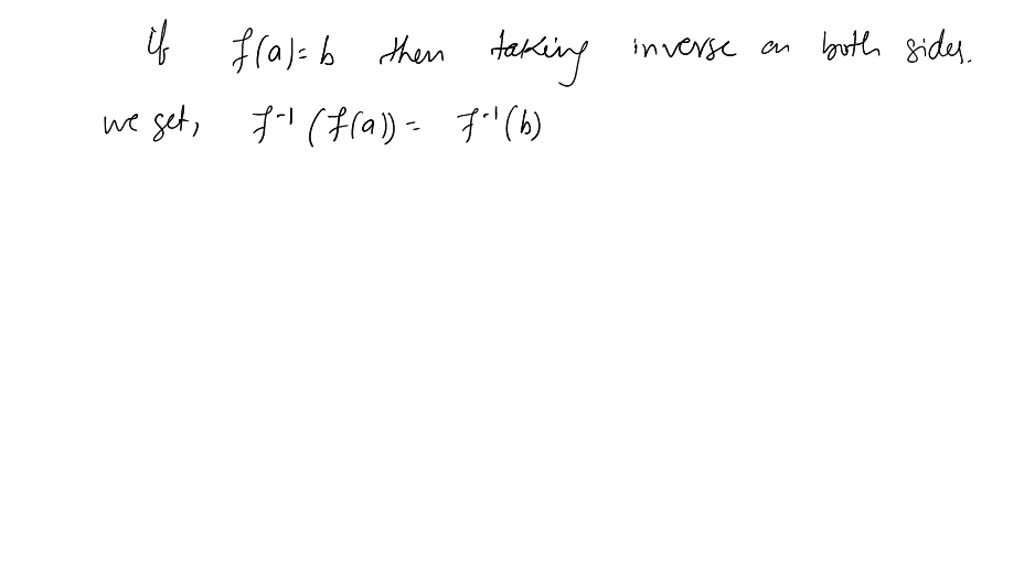 if f(a)=b then taking inverse on both sides.
we get, f⁻¹(f(a)) = f⁻¹(b)